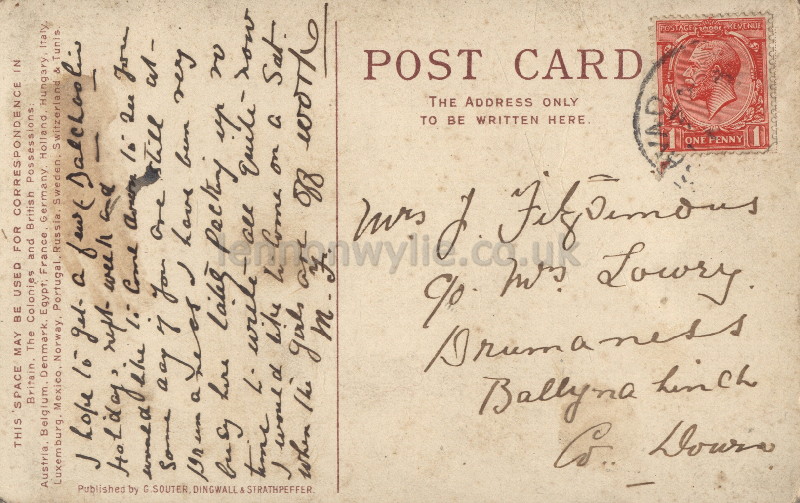 THIS SPACE MAY BE USED FOR CORRESPONDENCE IN
Britain, The Colonies and British Possessions:
Austria, Belgium, Denmark, Egypt, France, Germany, Holland, Hungary, Italy,
Luxemburg, Mexico, Norway, Portugal, Russia, Sweden, Switzerland & Tunis.
I hope to get a few (
Holiday, next week and
would like to come down to see you
some day if you are still at
Drumaness I have been very
busy here lately packing up no
time to write – all quite now
I would like to come on a Sat.
when the girls are off work
M. F.
Published by G. SOUTER, DINGWALL & STRATHPEFFER.
POST CARD
THE ADDRESS ONLY
TO BE WRITTEN HERE.
POSTAGE REVENUE
1 ONE PENNY 1
Mrs J. FitzSimons
c/o Mrs Lowry.
Drumaness
Ballynahinch
Co. Down
lennonwylie.co.uk